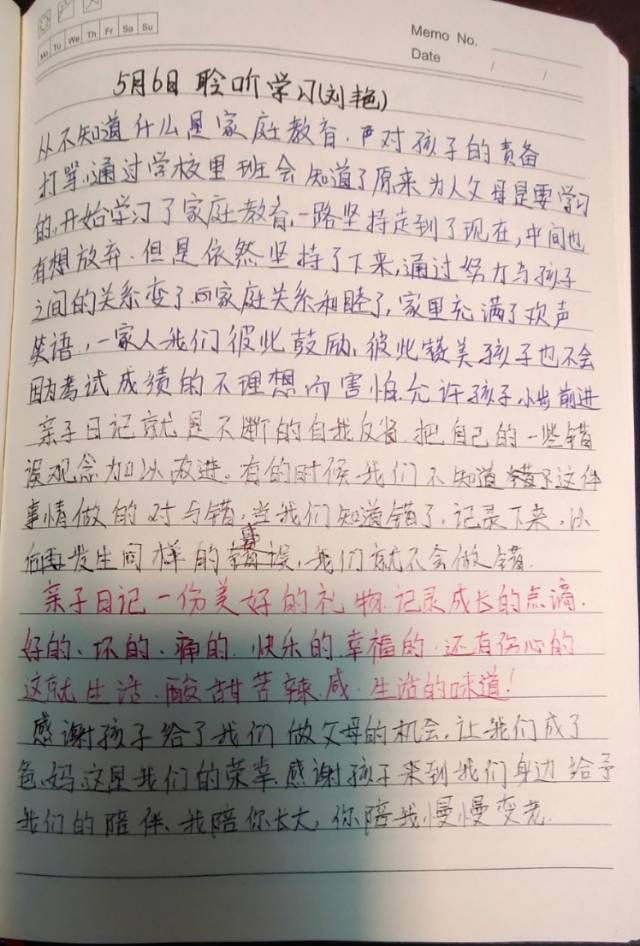 Mo Tu We Th Fr Sa Su
Memo No.
Date / /
5月6日 聆听学习(刘艳)
从不知道什么是家庭教育.声对孩子的责备
打骂,通过学校里班会知道了原来为人父母是要学习
的,开始学习了家庭教育,一路坚持走到了现在,中间也
有想放弃.但是依然坚持了下来,通过努力与孩子
之间的关系变了.而家庭关系和睦了,家里充满了欢声
笑语,一家人我们彼此鼓励,彼此赞美孩子也不会
因为考试成绩的不理想而害怕.允许孩子小步前进
亲子日记就是不断的自我反省.把自己的一些错
误观念加以改进。有的时候我们不知道错了这件
事情做的对与错,当我们知道错了.记录下来,以
后再发生同样的错误,我们就不会做错.
亲子日记一份美好的礼物.记录成长的点滴.
好的、坏的、痛的.快乐的.幸福的.还有伤心的
这就生活.酸甜苦辣咸.生活的味道!
感谢孩子给了我们做父母的机会.让我们成了
爸妈.这是我们的荣幸.感谢孩子来到我们身边给予
我们的陪伴、我陪你长大,你陪我慢慢变老.